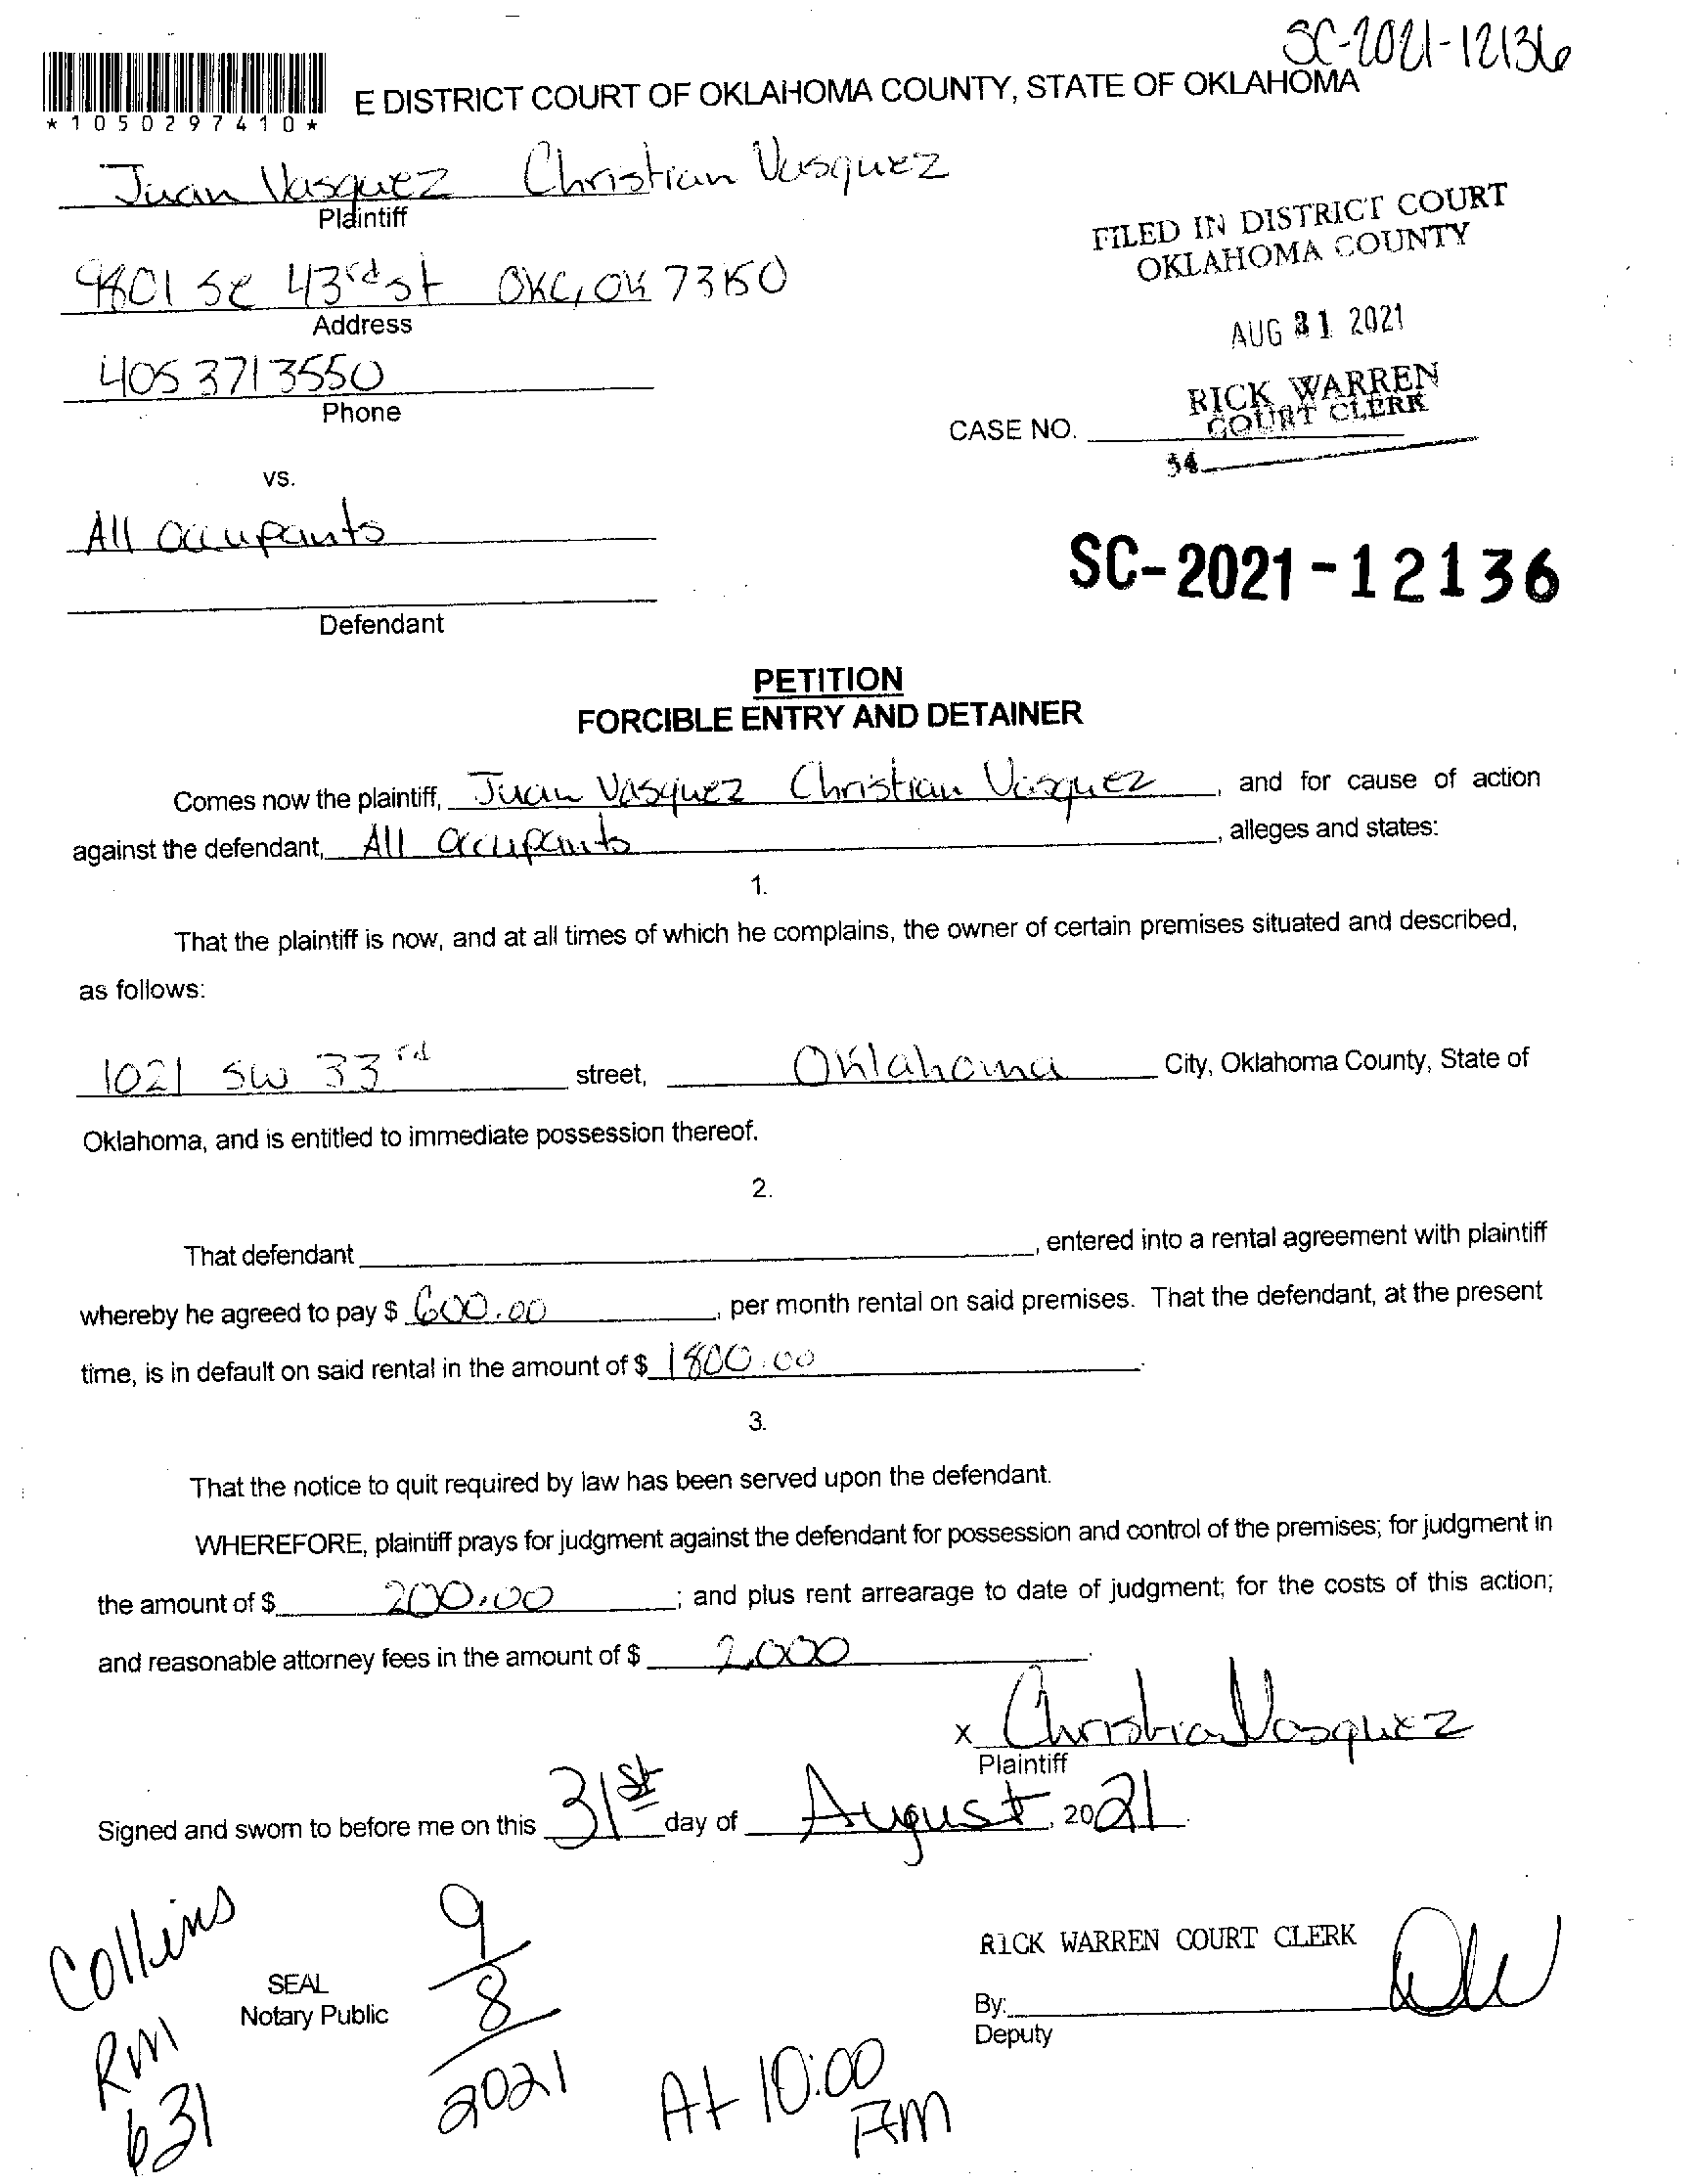 SC-2021-12136
*1050297410*
E DISTRICT COURT OF OKLAHOMA COUNTY, STATE OF OKLAHOMA
Juan Vasquez Christian Vasquez
Plaintiff
FILED IN DISTRICT COURT
OKLAHOMA COUNTY
9801 SE 43rd st OKC, OK 73150
Address
AUG 31 2021
4053713550
Phone
RICK WARREN
COURT CLERK
CASE NO.
34
vs.
All occupants
SC-2021-12136
Defendant
PETITION
FORCIBLE ENTRY AND DETAINER
Comes now the plaintiff, Juan Vasquez Christian Vasquez, and for cause of action
against the defendant, All occupants, alleges and states:
1.
That the plaintiff is now, and at all times of which he complains, the owner of certain premises situated and described,
as follows:
1021 SW 33rd street, Oklahoma City, Oklahoma County, State of
Oklahoma, and is entitled to immediate possession thereof.
2.
That defendant, entered into a rental agreement with plaintiff
whereby he agreed to pay $ 600.00, per month rental on said premises. That the defendant, at the present
time, is in default on said rental in the amount of $ 1800.00.
3.
That the notice to quit required by law has been served upon the defendant.
WHEREFORE, plaintiff prays for judgment against the defendant for possession and control of the premises; for judgment in
the amount of $ 200.00; and plus rent arrearage to date of judgment; for the costs of this action;
and reasonable attorney fees in the amount of $ 2,000.
x Christian Vasquez
Plaintiff
Signed and sworn to before me on this 31st day of August, 2021.
Collins
RM
631
SEAL
Notary Public
9/8/2021
At 10:00
AM
RICK WARREN COURT CLERK
By:
Deputy